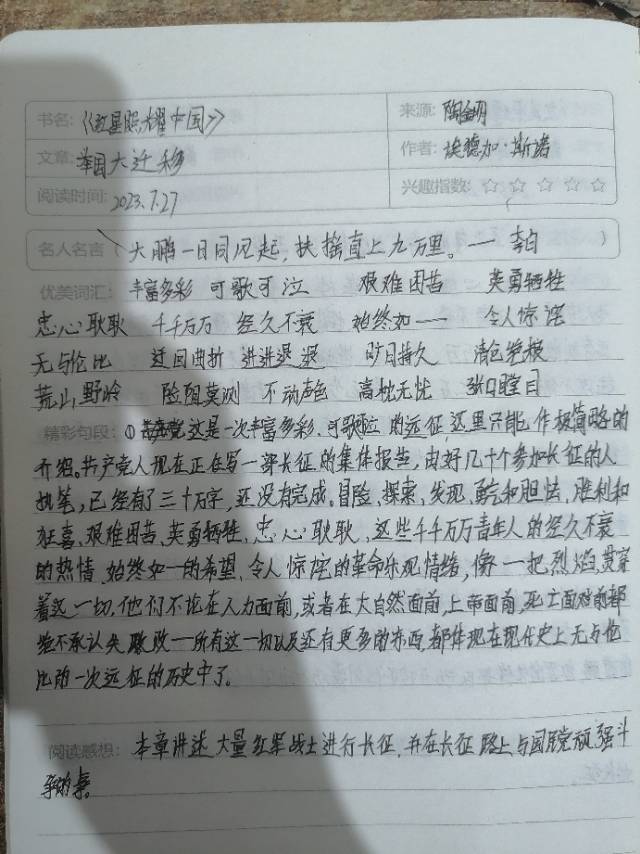 书名: 《红星照耀中国》 来源: 陶金明
文章: 举国大迁移 作者: 埃德加·斯诺
阅读时间: 2023.7.27 兴趣指数: ☆ ☆ ☆ ☆ ☆
名人名言 ( 大鹏一日同风起,扶摇直上九万里。—— 李白 )
优美词汇: 丰富多彩 可歌可泣 艰难困苦 英勇牺牲
忠心耿耿 千千万万 经久不衰 始终如一 令人惊诧
无与伦比 迂回曲折 进进退退 旷日持久
荒山野岭 险阻莫测 不动声色 高枕无忧 张目瞠目
精彩句段: ① 这是一次丰富多彩、可歌可泣的远征,这里只能作极简略的
介绍。共产党人现在正在写一部长征的集体报告,由好几十个参加长征的人
执笔,已经有了三十万字,还没有完成。冒险、探索、发现、勇气和胆怯、胜利和
狂喜、艰难困苦、英勇牺牲、忠心耿耿、这些千千万万青年人的经久不衰
的热情、始终如一的希望、令人惊诧的革命乐观情绪,像一把烈焰,贯穿
着这一切,他们不论在人力面前,或者在大自然面前,上帝面前,死亡面前都
绝不承认失败——所有这一切以及还有更多的东西,都体现在现代史上无与伦
比的一次远征的历史中了。
阅读感想: 本章讲述大量红军战士进行长征,并在长征路上与国民党顽强斗
争的事。